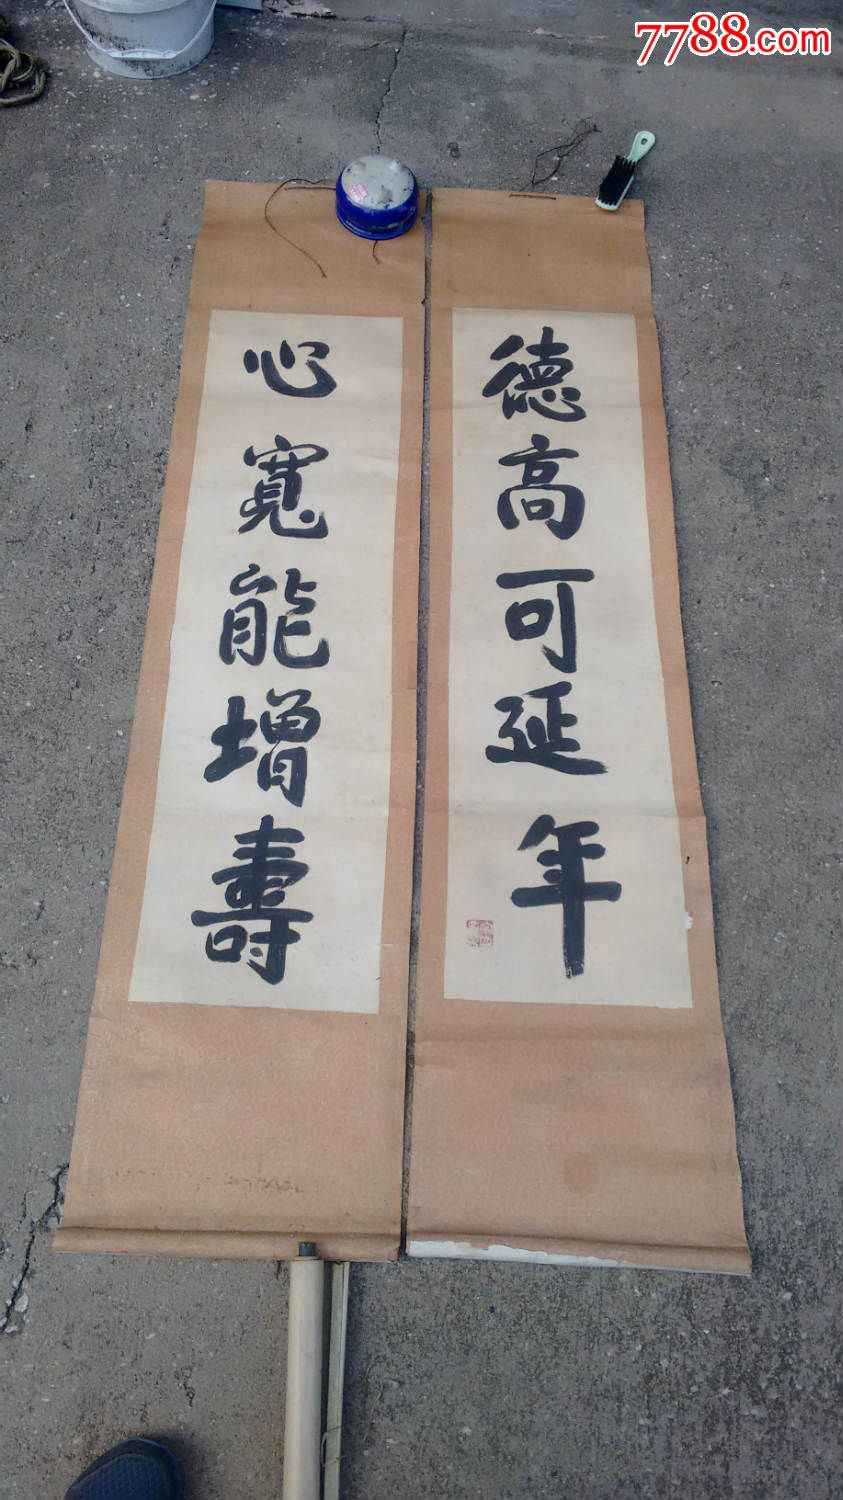 7788.com
德高可延年
心寬能增壽